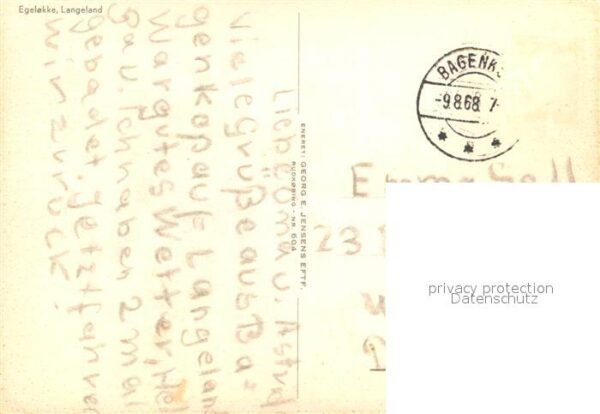 Egeløkke, Langeland
Liebe Oma u. Astrid
viele Grüße aus Ba=
genkop auf Langeland
War gutes Wetter, Hel
ga u. Ich haben 2 mal
gebadet, jetzt fahren
wir zurück!
ENERET: GEORG E. JENSENS EFTF.
RUDKØBING - NR. 604
BAGENK
-9.8.68 7-
23
privacy protection
Datenschutz